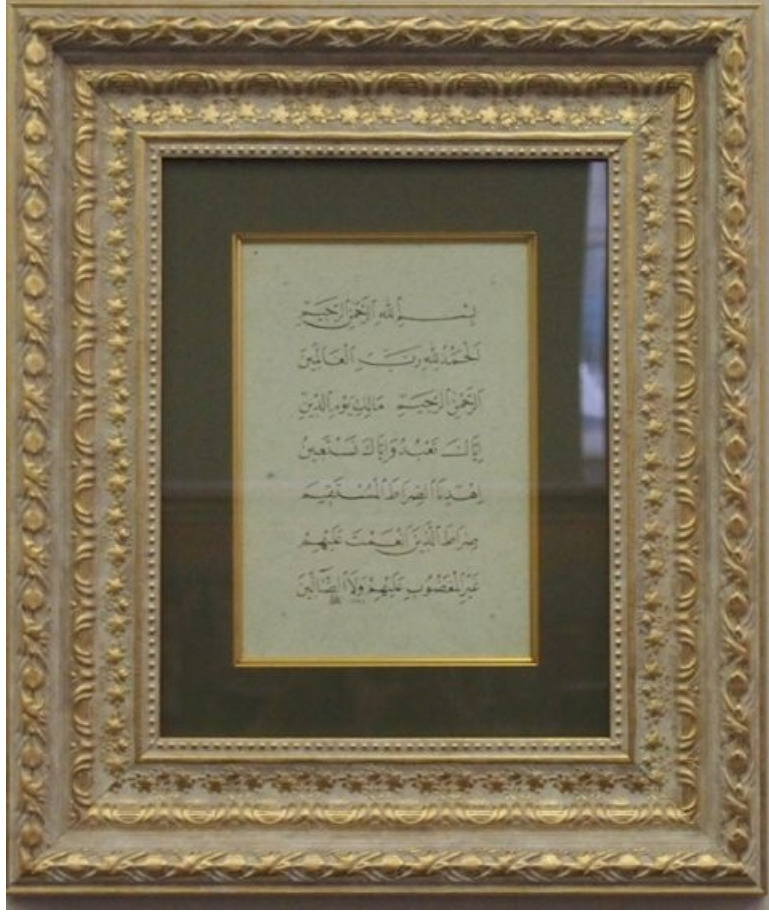 بِسْمِ ٱللهِ ٱلرَّحْمٰنِ ٱلرَّحِيمِ
اَلْحَمْدُ لِلّٰهِ رَبِّ الْعَالَمِينَ
اَلرَّحْمٰنِ ٱلرَّحِيمِ مَالِكِ يَوْمِ ٱلدِّينِ
اِيَّاكَ نَعْبُدُ وَاِيَّاكَ نَسْتَعِينُ
اِهْدِنَا ٱلصِّرَاطَ ٱلْمُسْتَقِيمَ
صِرَاطَ ٱلَّذِينَ اَنْعَمْتَ عَلَيْهِمْ
غَيْرِ ٱلْمَغْضُوبِ عَلَيْهِمْ وَلَا ٱلضَّآلِّينَ